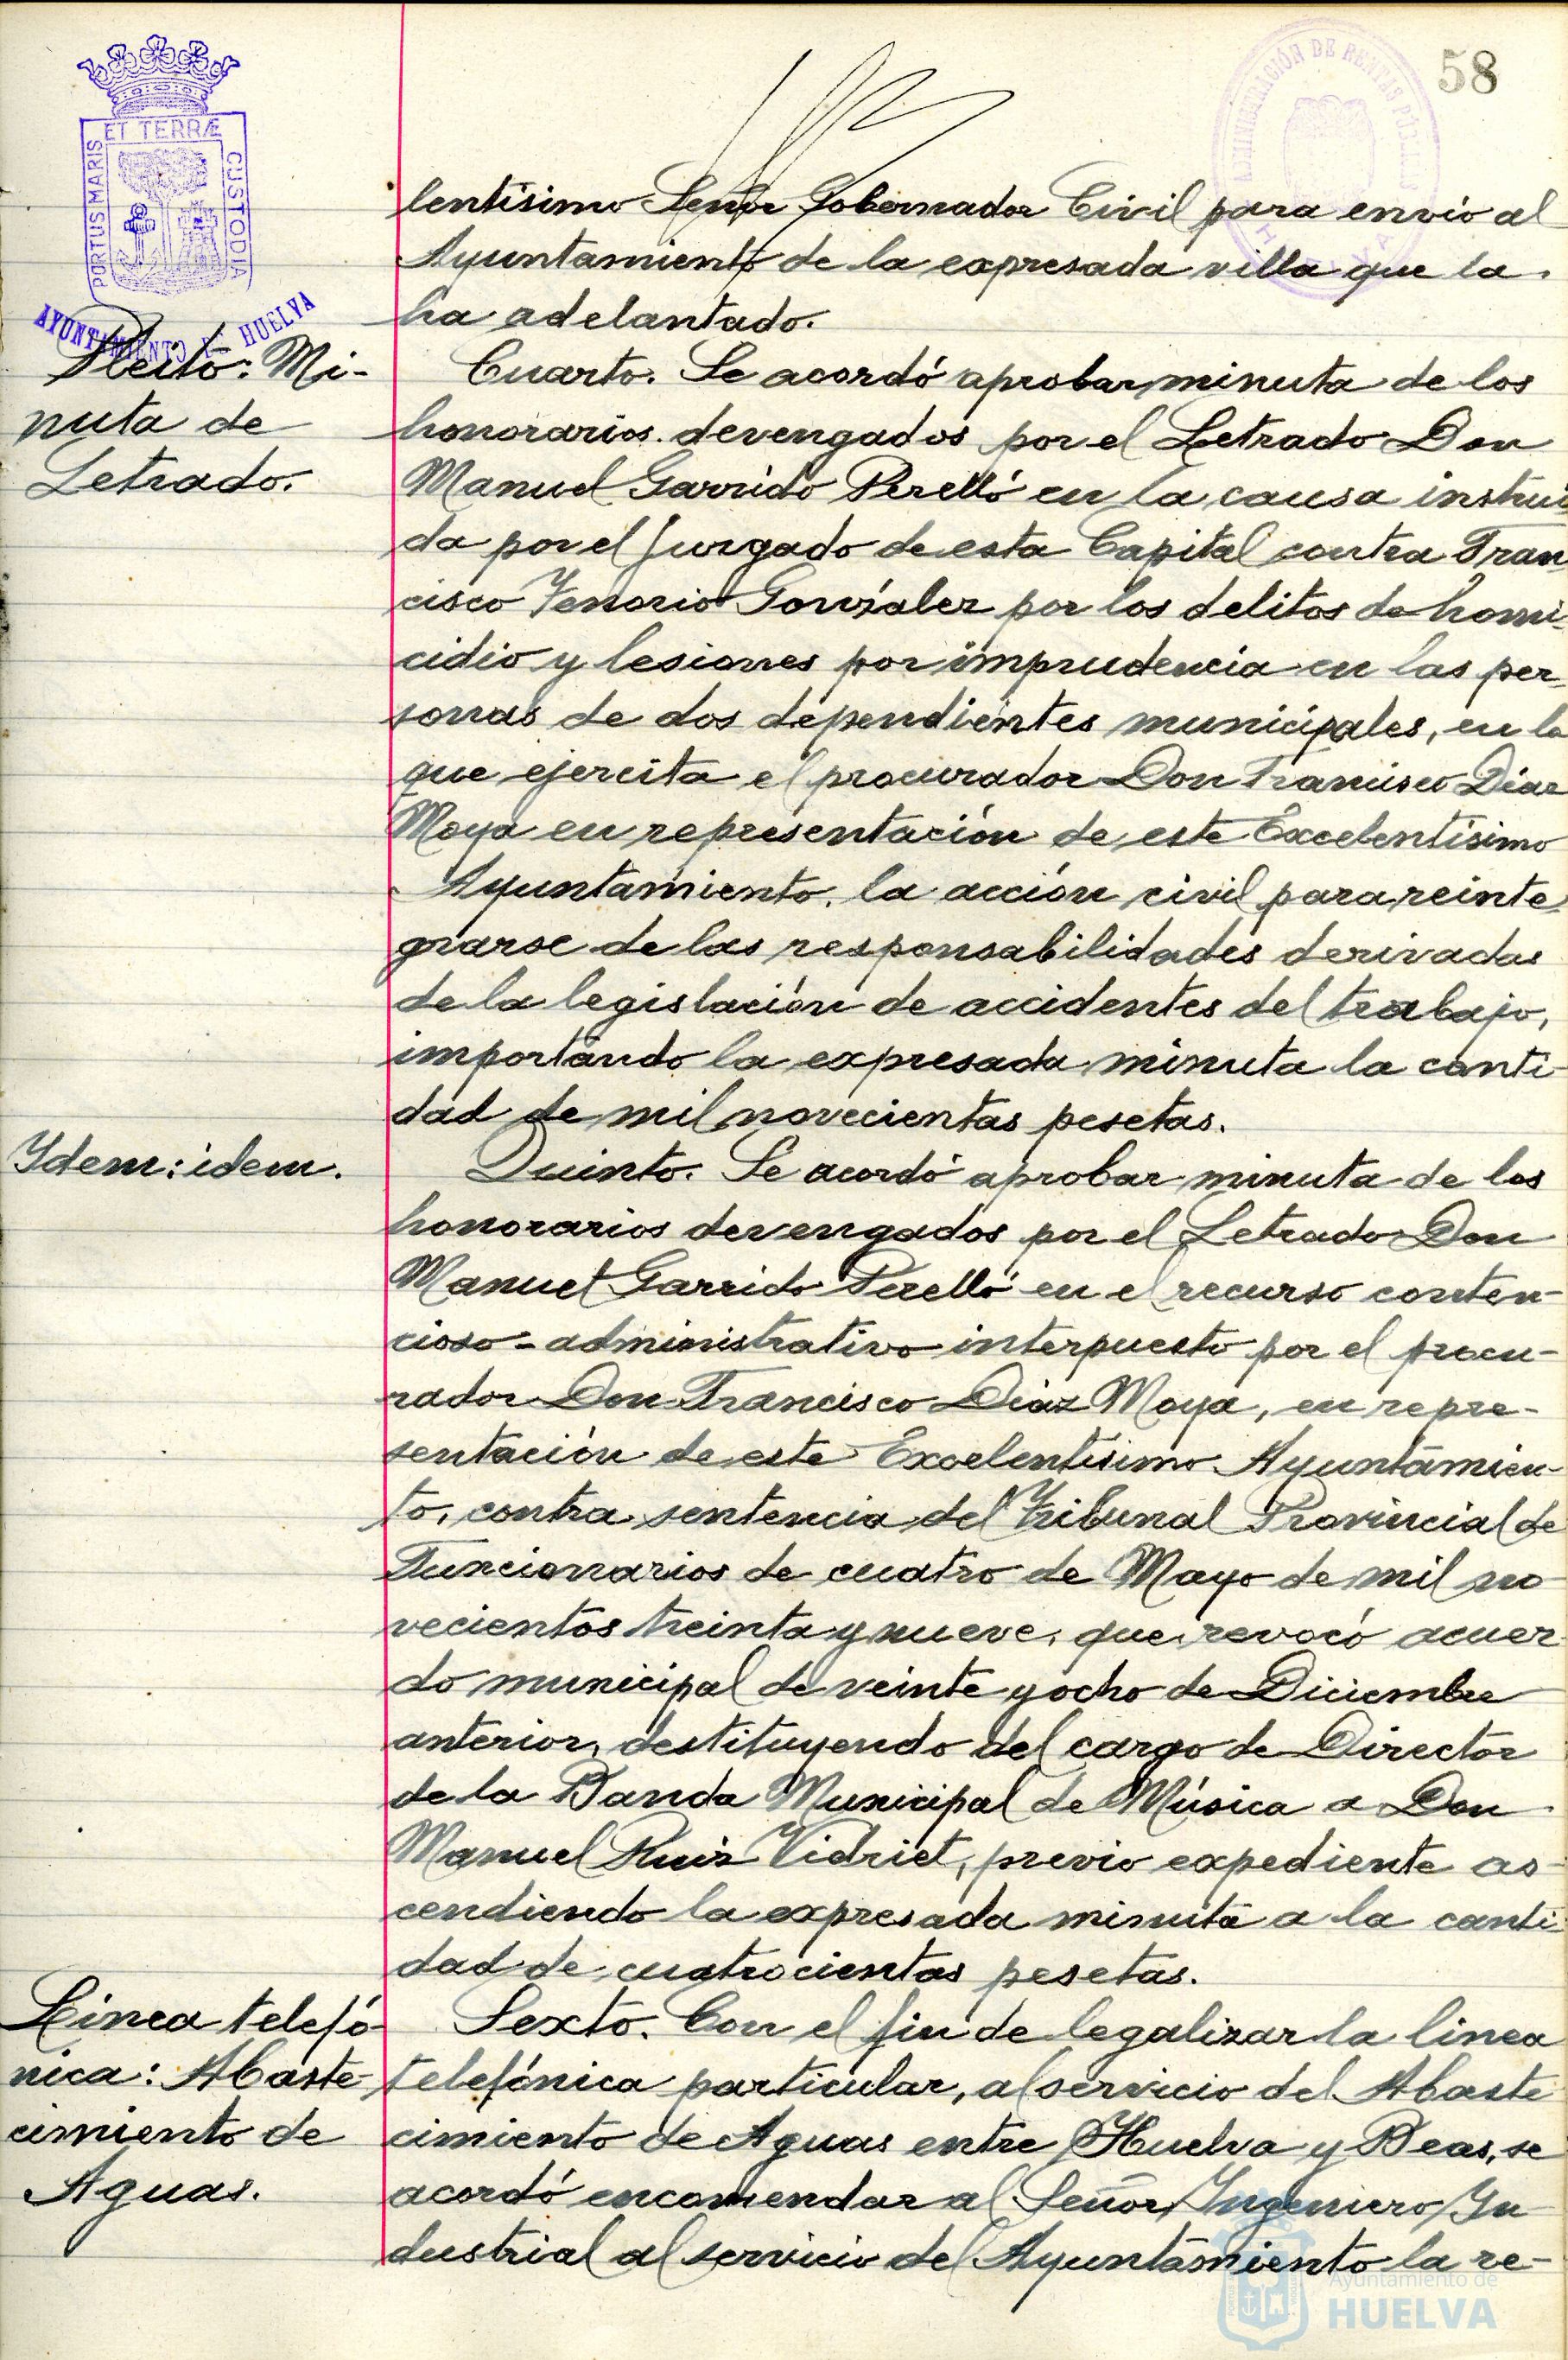 58
ET TERRÆ
PORTUS MARIS
CUSTODIA
AYUNTAMIENTO DE HUELVA
ADMINISTRACIÓN DE RENTAS PÚBLICAS
lentísimo Señor Gobernador Civil para envío al
Ayuntamiento de la expresada villa que la
ha adelantado.
Pleito: Mi-
nuta de
Letrado.
Cuarto. Se acordó aprobar minuta de los
honorarios devengados por el Letrado Don
Manuel Garrido Perelló en la causa instrui
da por el Juzgado de esta Capital contra Fran
cisco Tenorio González por los delitos de homi-
cidio y lesiones por imprudencia en las per-
sonas de dos dependientes municipales, en la
que ejercita el procurador Don Francisco Díaz
Moya en representación de este Excelentísimo
Ayuntamiento, la acción civil para reinte-
grarse de las responsabilidades derivadas
de la legislación de accidentes del trabajo,
importando la expresada minuta la canti-
dad de mil novecientas pesetas.
Ydem: idem.
Quinto. Se acordó aprobar minuta de los
honorarios devengados por el Letrado Don
Manuel Garrido Perelló en el recurso conten-
cioso-administrativo interpuesto por el procu-
rador Don Francisco Díaz Moya, en repre-
sentación de este Excelentísimo Ayuntamien-
to, contra sentencia del Tribunal Provincial de
Funcionarios de cuatro de Mayo de mil no
vecientos treinta y nueve, que revocó acuer
do municipal de veinte y ocho de Diciembre
anterior, destituyendo del cargo de Director
de la Banda Municipal de Música a Don
Manuel Ruiz Vidriet, previo expediente as-
cendiendo la expresada minuta a la canti-
dad de cuatrocientas pesetas.
Linea telefó-
nica: Abaste-
cimiento de
Aguas.
Sexto. Con el fin de legalizar la linea
telefónica particular, al servicio del Abaste
cimiento de Aguas entre Huelva y Beas, se
acordó encomendar al Señor Ingeniero In
dustrial al servicio del Ayuntamiento la re-
Ayuntamiento de
HUELVA